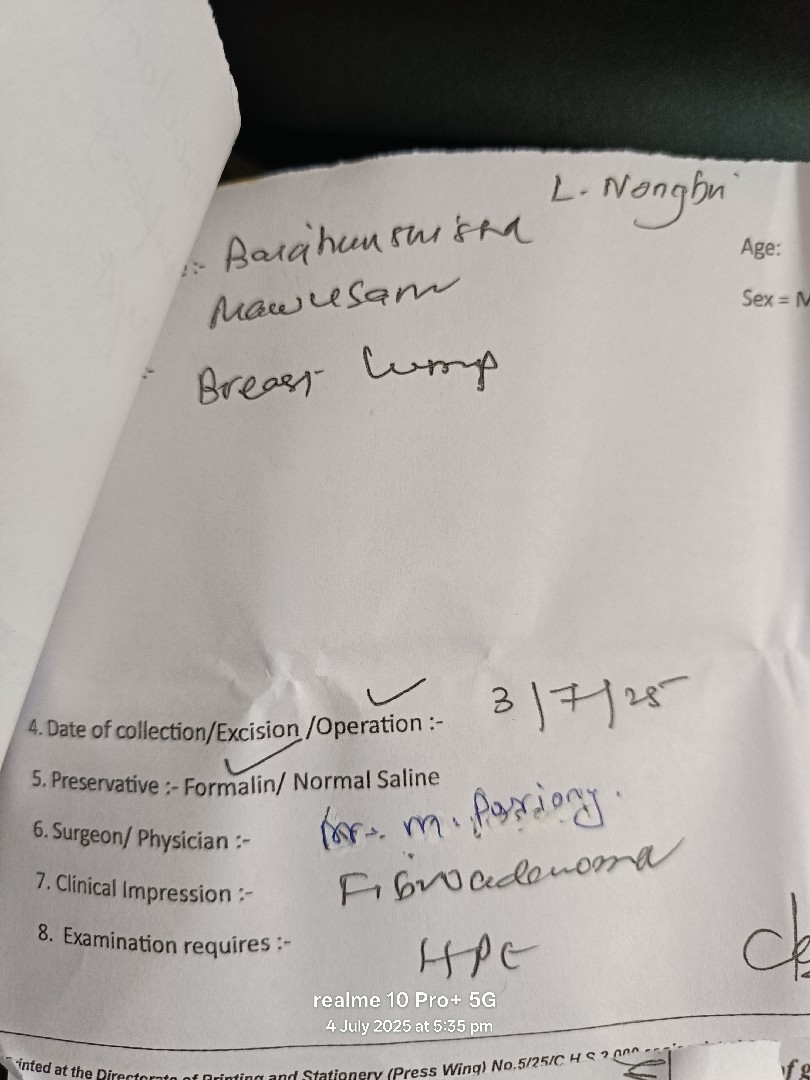 L. Nongbri
:- 
Mawusam
:- Breast lump
Age:
Sex = M
4. Date of collection/Excision /Operation :- 3/7/25
5. Preservative :- Formalin/ Normal Saline
6. Surgeon/ Physician :- M.
7. Clinical Impression :- Fibroadenoma
8. Examination requires :- HPE
realme 10 Pro+ 5G
4 July 2025 at 5:35 pm
inted at the Directorate of Printing and Stationery (Press Wing) No.5/25/C H.S